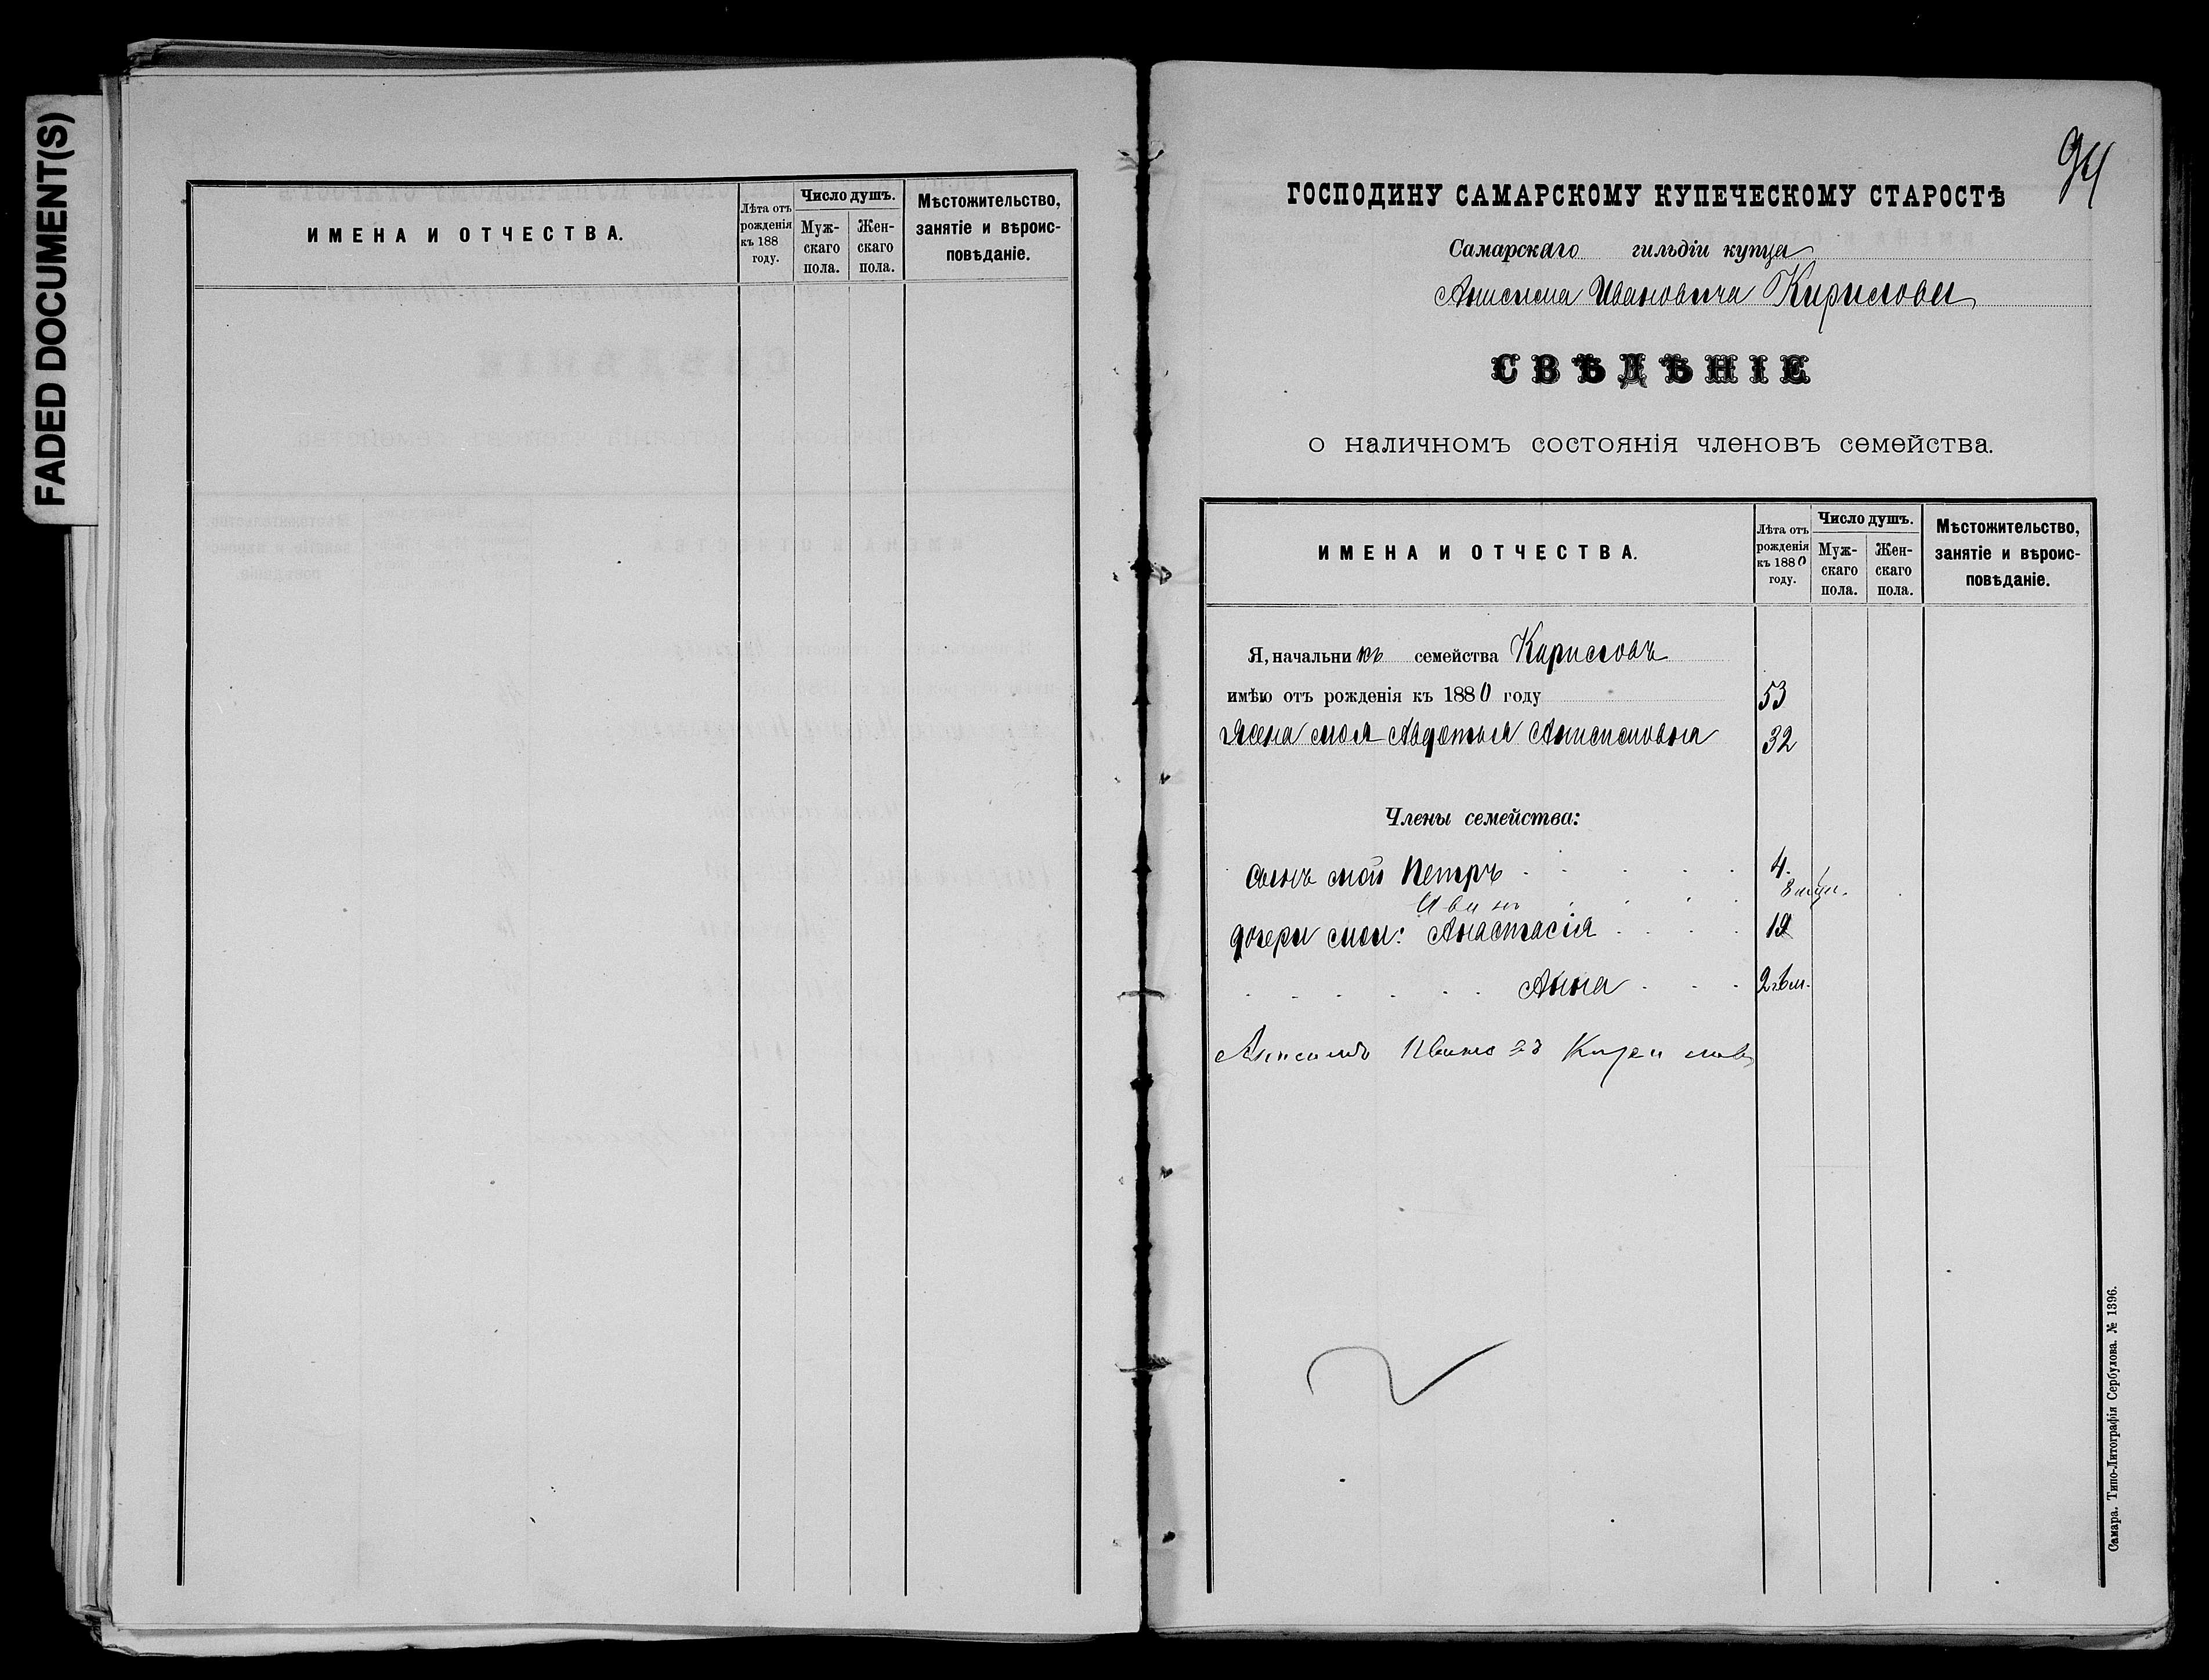 FADED DOCUMENT(S)
ИМЕНА И ОТЧЕСТВА.
Лѣта отъ рожденія къ 188 году.
Число душъ.
Мужскаго пола.
Женскаго пола.
Мѣстожительство, занятіе и вѣроисповѣданіе.
94
ГОСПОДИНУ САМАРСКОМУ КУПЕЧЕСКОМУ СТАРОСТѢ
Самарскаго гильдіи купца
Анисима Ивановича Кирилова
СВѢДѢНІЕ
о наличномъ состоянія членовъ семейства.
ИМЕНА И ОТЧЕСТВА.
Лѣта отъ рожденія къ 1880 году.
Число душъ.
Муж-
скаго
пола.
Жен-
скаго
пола.
Мѣстожительство,
занятіе и вѣроис-
повѣданіе.
Я, начальникъ семейства Кириловъ
имѣю отъ рожденія къ 1880 году 53
Жена моя Авдотья Анисимовна 32
Члены семейства:
Сынъ мой Петръ 4.
Иванъ
дочери мои: Анастасія 19
Анна
Анисимъ Кирилов
Самара. Типо-Литографія Сербулова. № 1396.